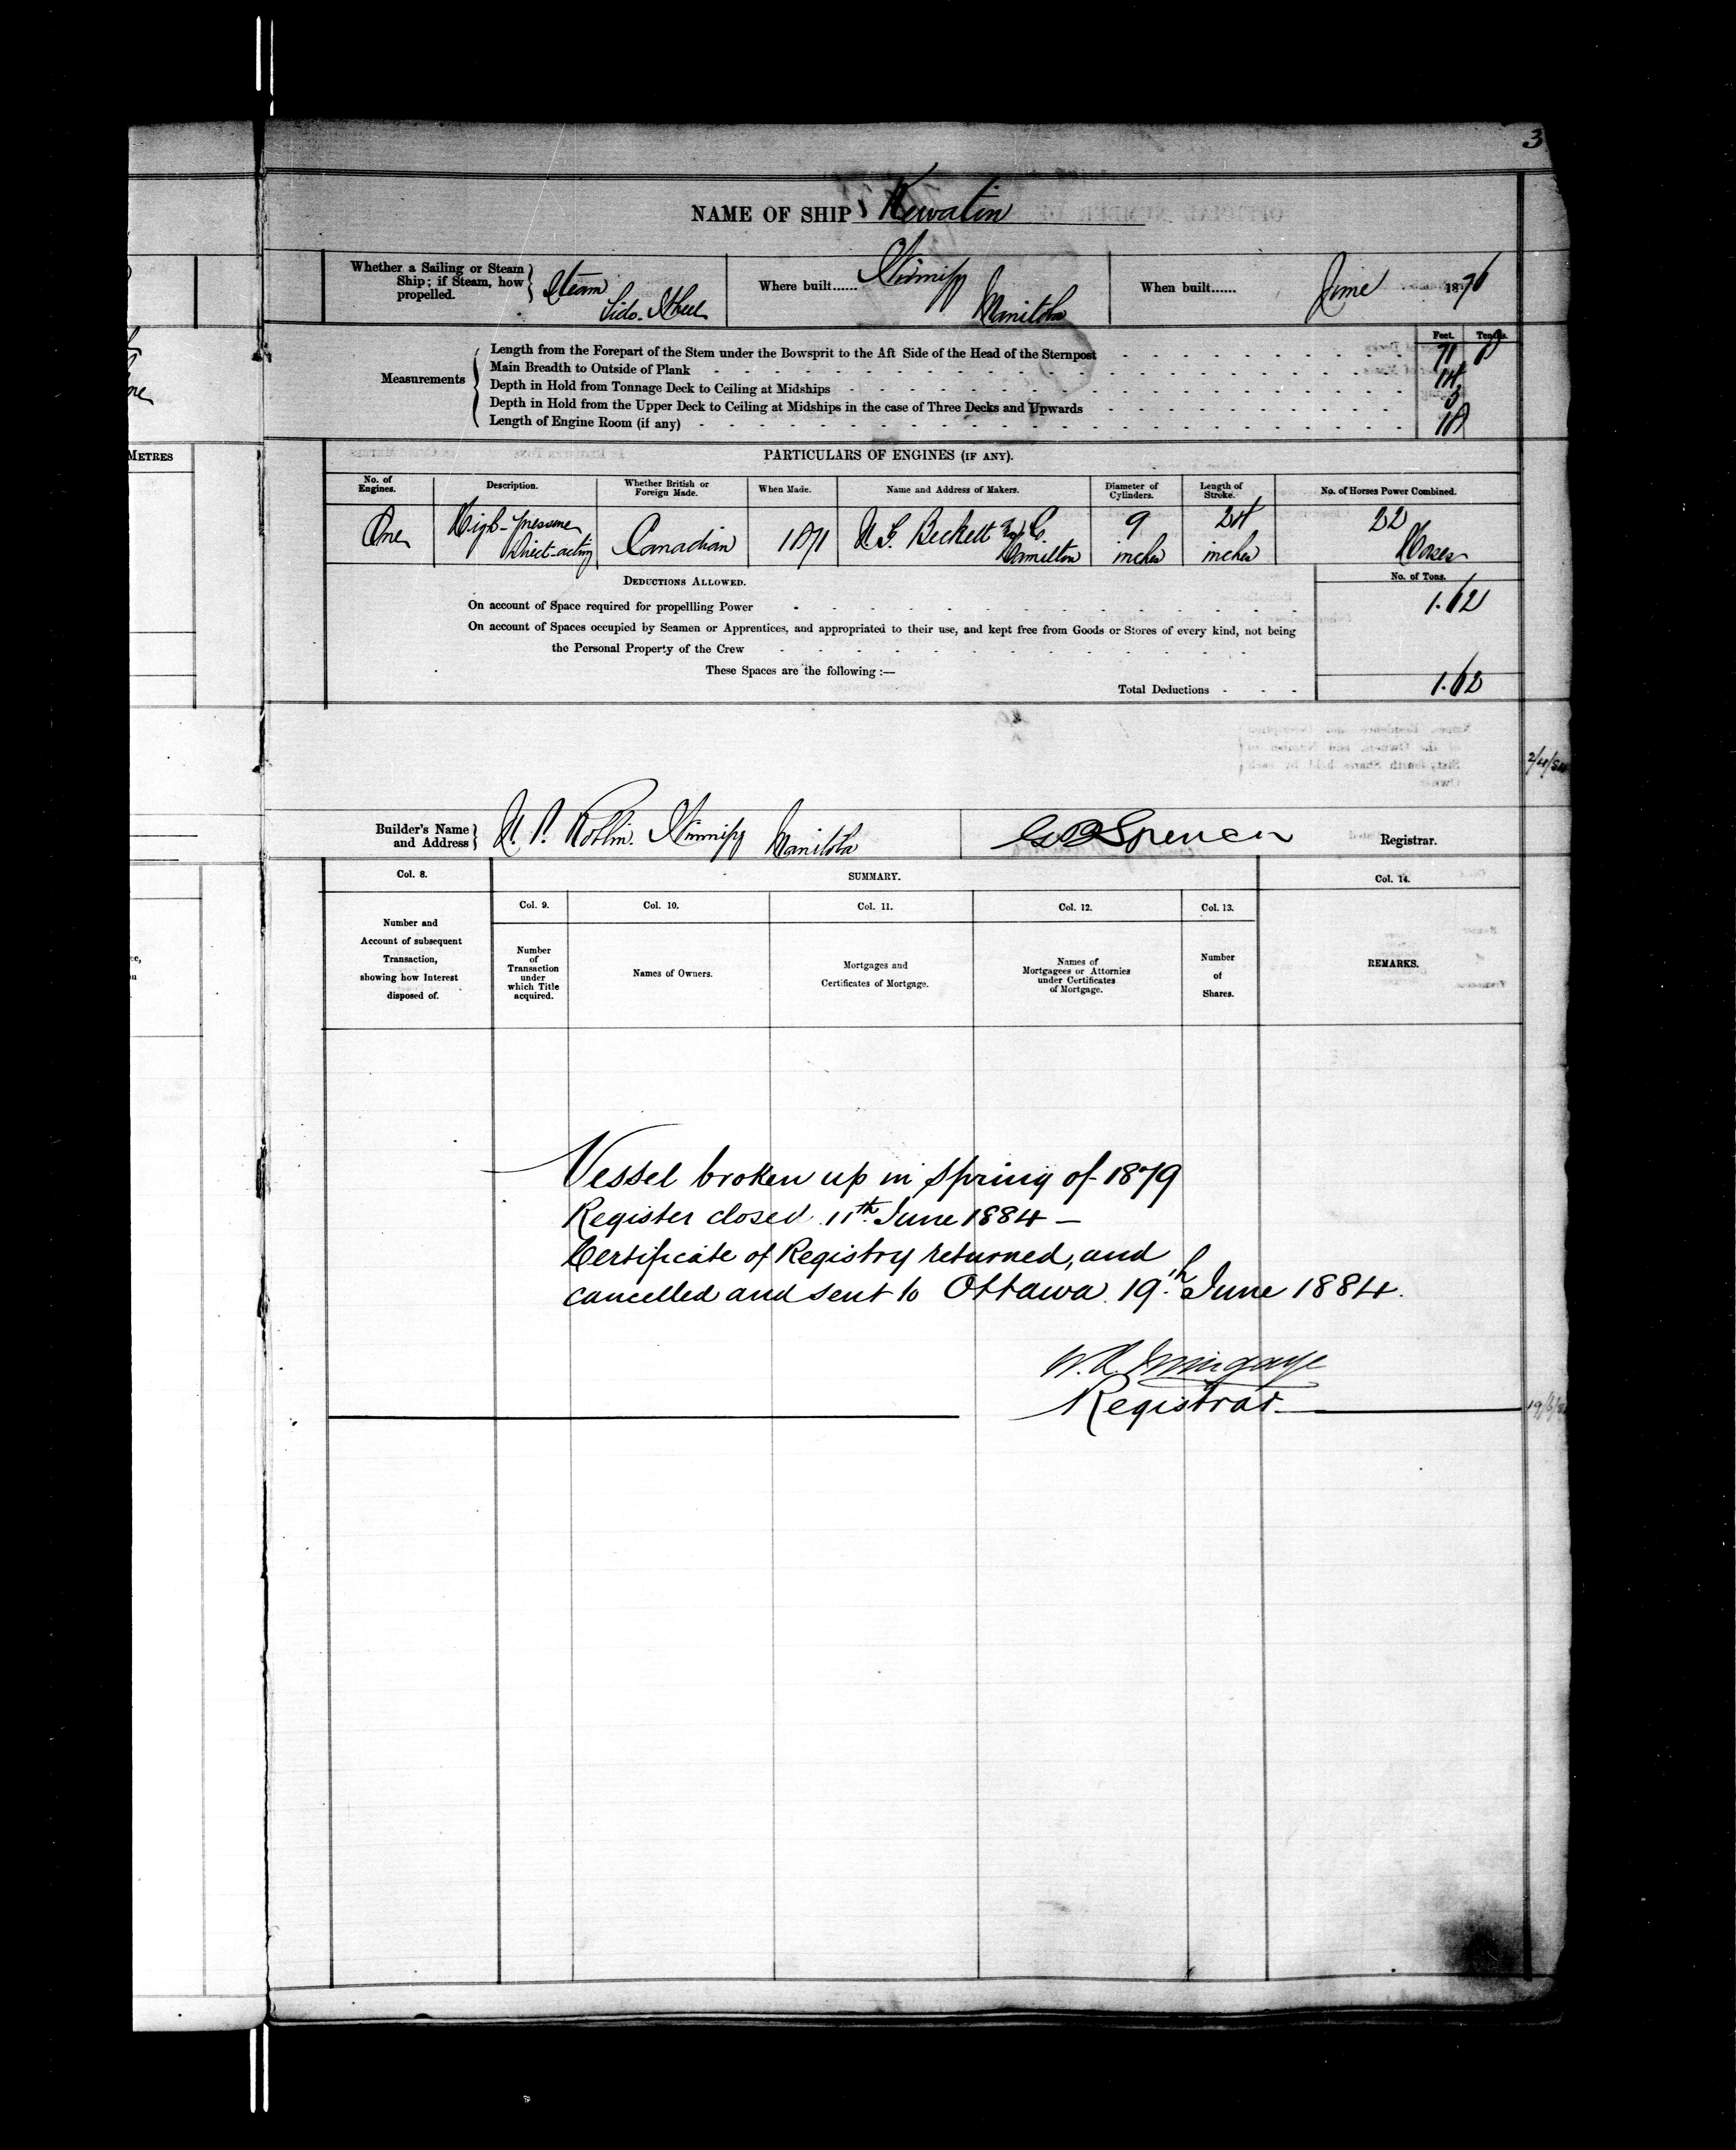 3
NAME OF SHIP Kewatin
Whether a Sailing or Steam Ship; if Steam, how propelled. Steam Side Wheel
Where built...... Winnipeg Manitoba
When built...... June 1876
METRES
Measurements
Feet. Tenths.
Length from the Forepart of the Stem under the Bowsprit to the Aft Side of the Head of the Sternpost 71
Main Breadth to Outside of Plank 14
Depth in Hold from Tonnage Deck to Ceiling at Midships 3
Depth in Hold from the Upper Deck to Ceiling at Midships in the case of Three Decks and Upwards
Length of Engine Room (if any) 18
PARTICULARS OF ENGINES (IF ANY).
No. of Engines. Description. Whether British or Foreign Made. When Made. Name and Address of Makers. Diameter of Cylinders. Length of Stroke. No. of Horses Power Combined.
One High-pressure Direct-acting Canadian 1871 Beckett & Co. Hamilton 9 inches 24 inches 22 Horses
DEDUCTIONS ALLOWED.
No. of Tons.
On account of Space required for propellling Power 1.62
On account of Spaces occupied by Seamen or Apprentices, and appropriated to their use, and kept free from Goods or Stores of every kind, not being
the Personal Property of the Crew
These Spaces are the following :—
Total Deductions 1.62
Builder's Name and Address Winnipeg Manitoba
G B Spencer Registrar.
Col. 8. SUMMARY. Col. 14.
Col. 9. Col. 10. Col. 11. Col. 12. Col. 13.
Number and Account of subsequent Transaction, showing how Interest disposed of.
Number of Transaction under which Title acquired.
Names of Owners.
Mortgages and Certificates of Mortgage.
Names of Mortgagees or Attornies under Certificates of Mortgage.
Number of Shares.
REMARKS.
Vessel broken up in Spring of 1879
Register closed 11th June 1884 —
Certificate of Registry returned, and
cancelled and sent to Ottawa 19th June 1884.
W. R. Mingaye
Registrar